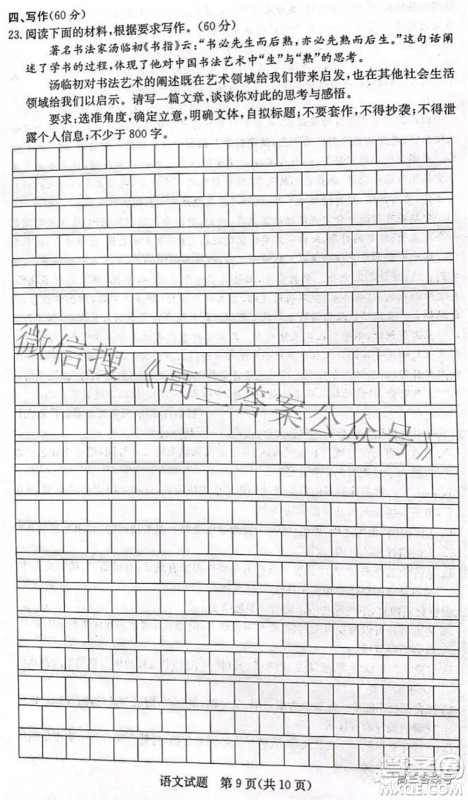 四、写作(60分)
23.阅读下面的材料,根据要求写作。(60分)
著名书法家汤临初《书指》云:“书必先生而后熟,亦必先熟而后生。”这句话阐
述了学书的过程,体现了他对中国书法艺术中“生”与“熟”的思考。
汤临初对书法艺术的阐述既在艺术领域给我们带来启发,也在其他社会生活
领域给我们以启示。请写一篇文章,谈谈你对此的思考与感悟。
要求:选准角度,确定立意,明确文体,自拟标题;不要套作,不得抄袭;不得泄
露个人信息;不少于800字。
微信搜《高三答案公众号》
语文试题 第9页(共10页)